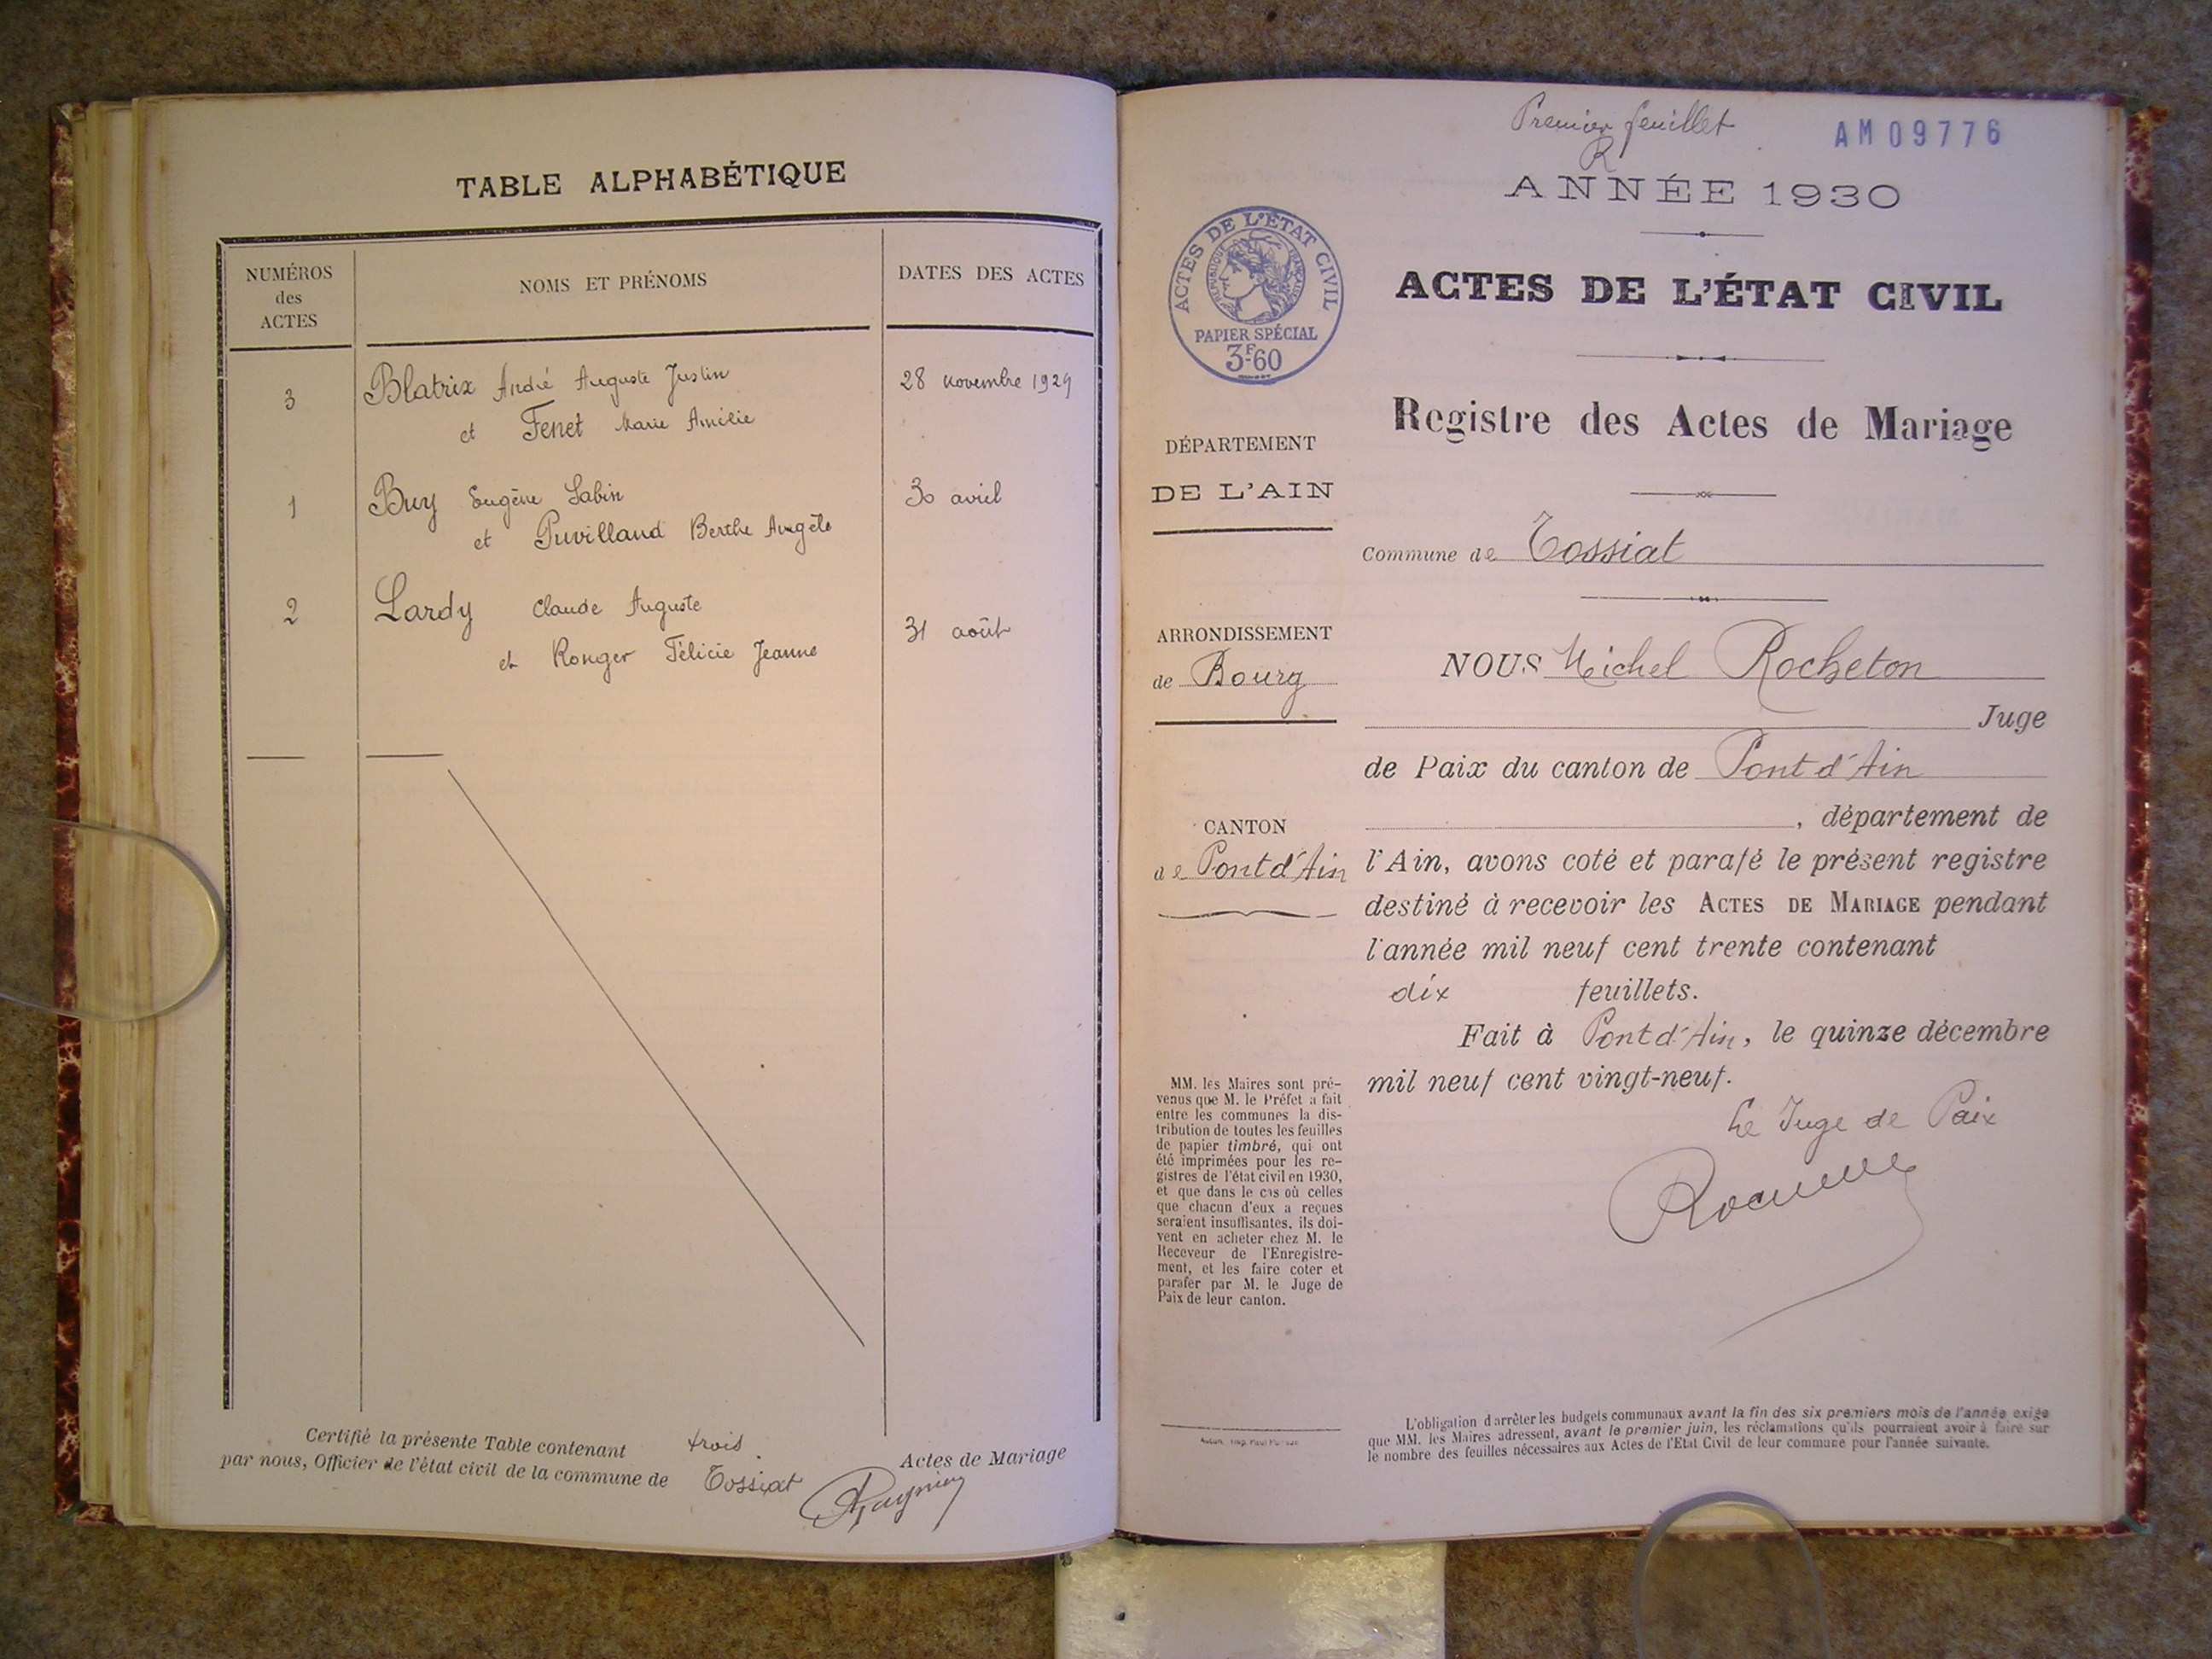 TABLE ALPHABÉTIQUE
NUMÉROS
des
ACTES
NOMS ET PRÉNOMS
DATES DES ACTES
3 Blatrix André Auguste Justin 28 novembre 1929
et Fenet Marie Amélie
1 Buy Eugène Sabin 30 avril
et Puvilland Berthe Angèle
2 Lardy Claude Auguste
31 août
et Ronger Félicie Jeanne
Certifié la présente Table contenant trois Actes de Mariage
par nous, Officier de l'état civil de la commune de Tossiat
Premier feuillet
R
AM09776
ANNÉE 1930
ACTES DE L'ÉTAT CIVIL
RÉPUBLIQUE FRANÇAISE
PAPIER SPÉCIAL
3F60
ACTES DE L'ÉTAT CIVIL
Registre des Actes de Mariage
DÉPARTEMENT
DE L'AIN
Commune de Tossiat
ARRONDISSEMENT
de Bourg
CANTON
de Pont d'Ain
NOUS Michel Rocheton
Juge
de Paix du canton de Pont d'Ain
, département de
l'Ain, avons coté et parafé le présent registre
destiné à recevoir les ACTES DE MARIAGE pendant
l'année mil neuf cent trente contenant
dix feuillets.
Fait à Pont d'Ain, le quinze décembre
mil neuf cent vingt-neuf.
Le Juge de Paix
MM. les Maires sont pré-
venus que M. le Préfet a fait
entre les communes la dis-
tribution de toutes les feuilles
de papier timbré, qui ont
été imprimées pour les re-
gistres de l'état civil en 1930,
et que dans le cas où celles
que chacun d'eux a reçues
seraient insuffisantes, ils doi-
vent en acheter chez M. le
Receveur de l'Enregistre-
ment, et les faire coter et
parafer par M. le Juge de
Paix de leur canton.
L'obligation d'arrêter les budgets communaux avant la fin des six premiers mois de l'année exige
que MM. les Maires adressent, avant le premier juin, les réclamations qu'ils pourraient avoir à faire sur
le nombre des feuilles nécessaires aux Actes de l'Etat Civil de leur commune pour l'année suivante.